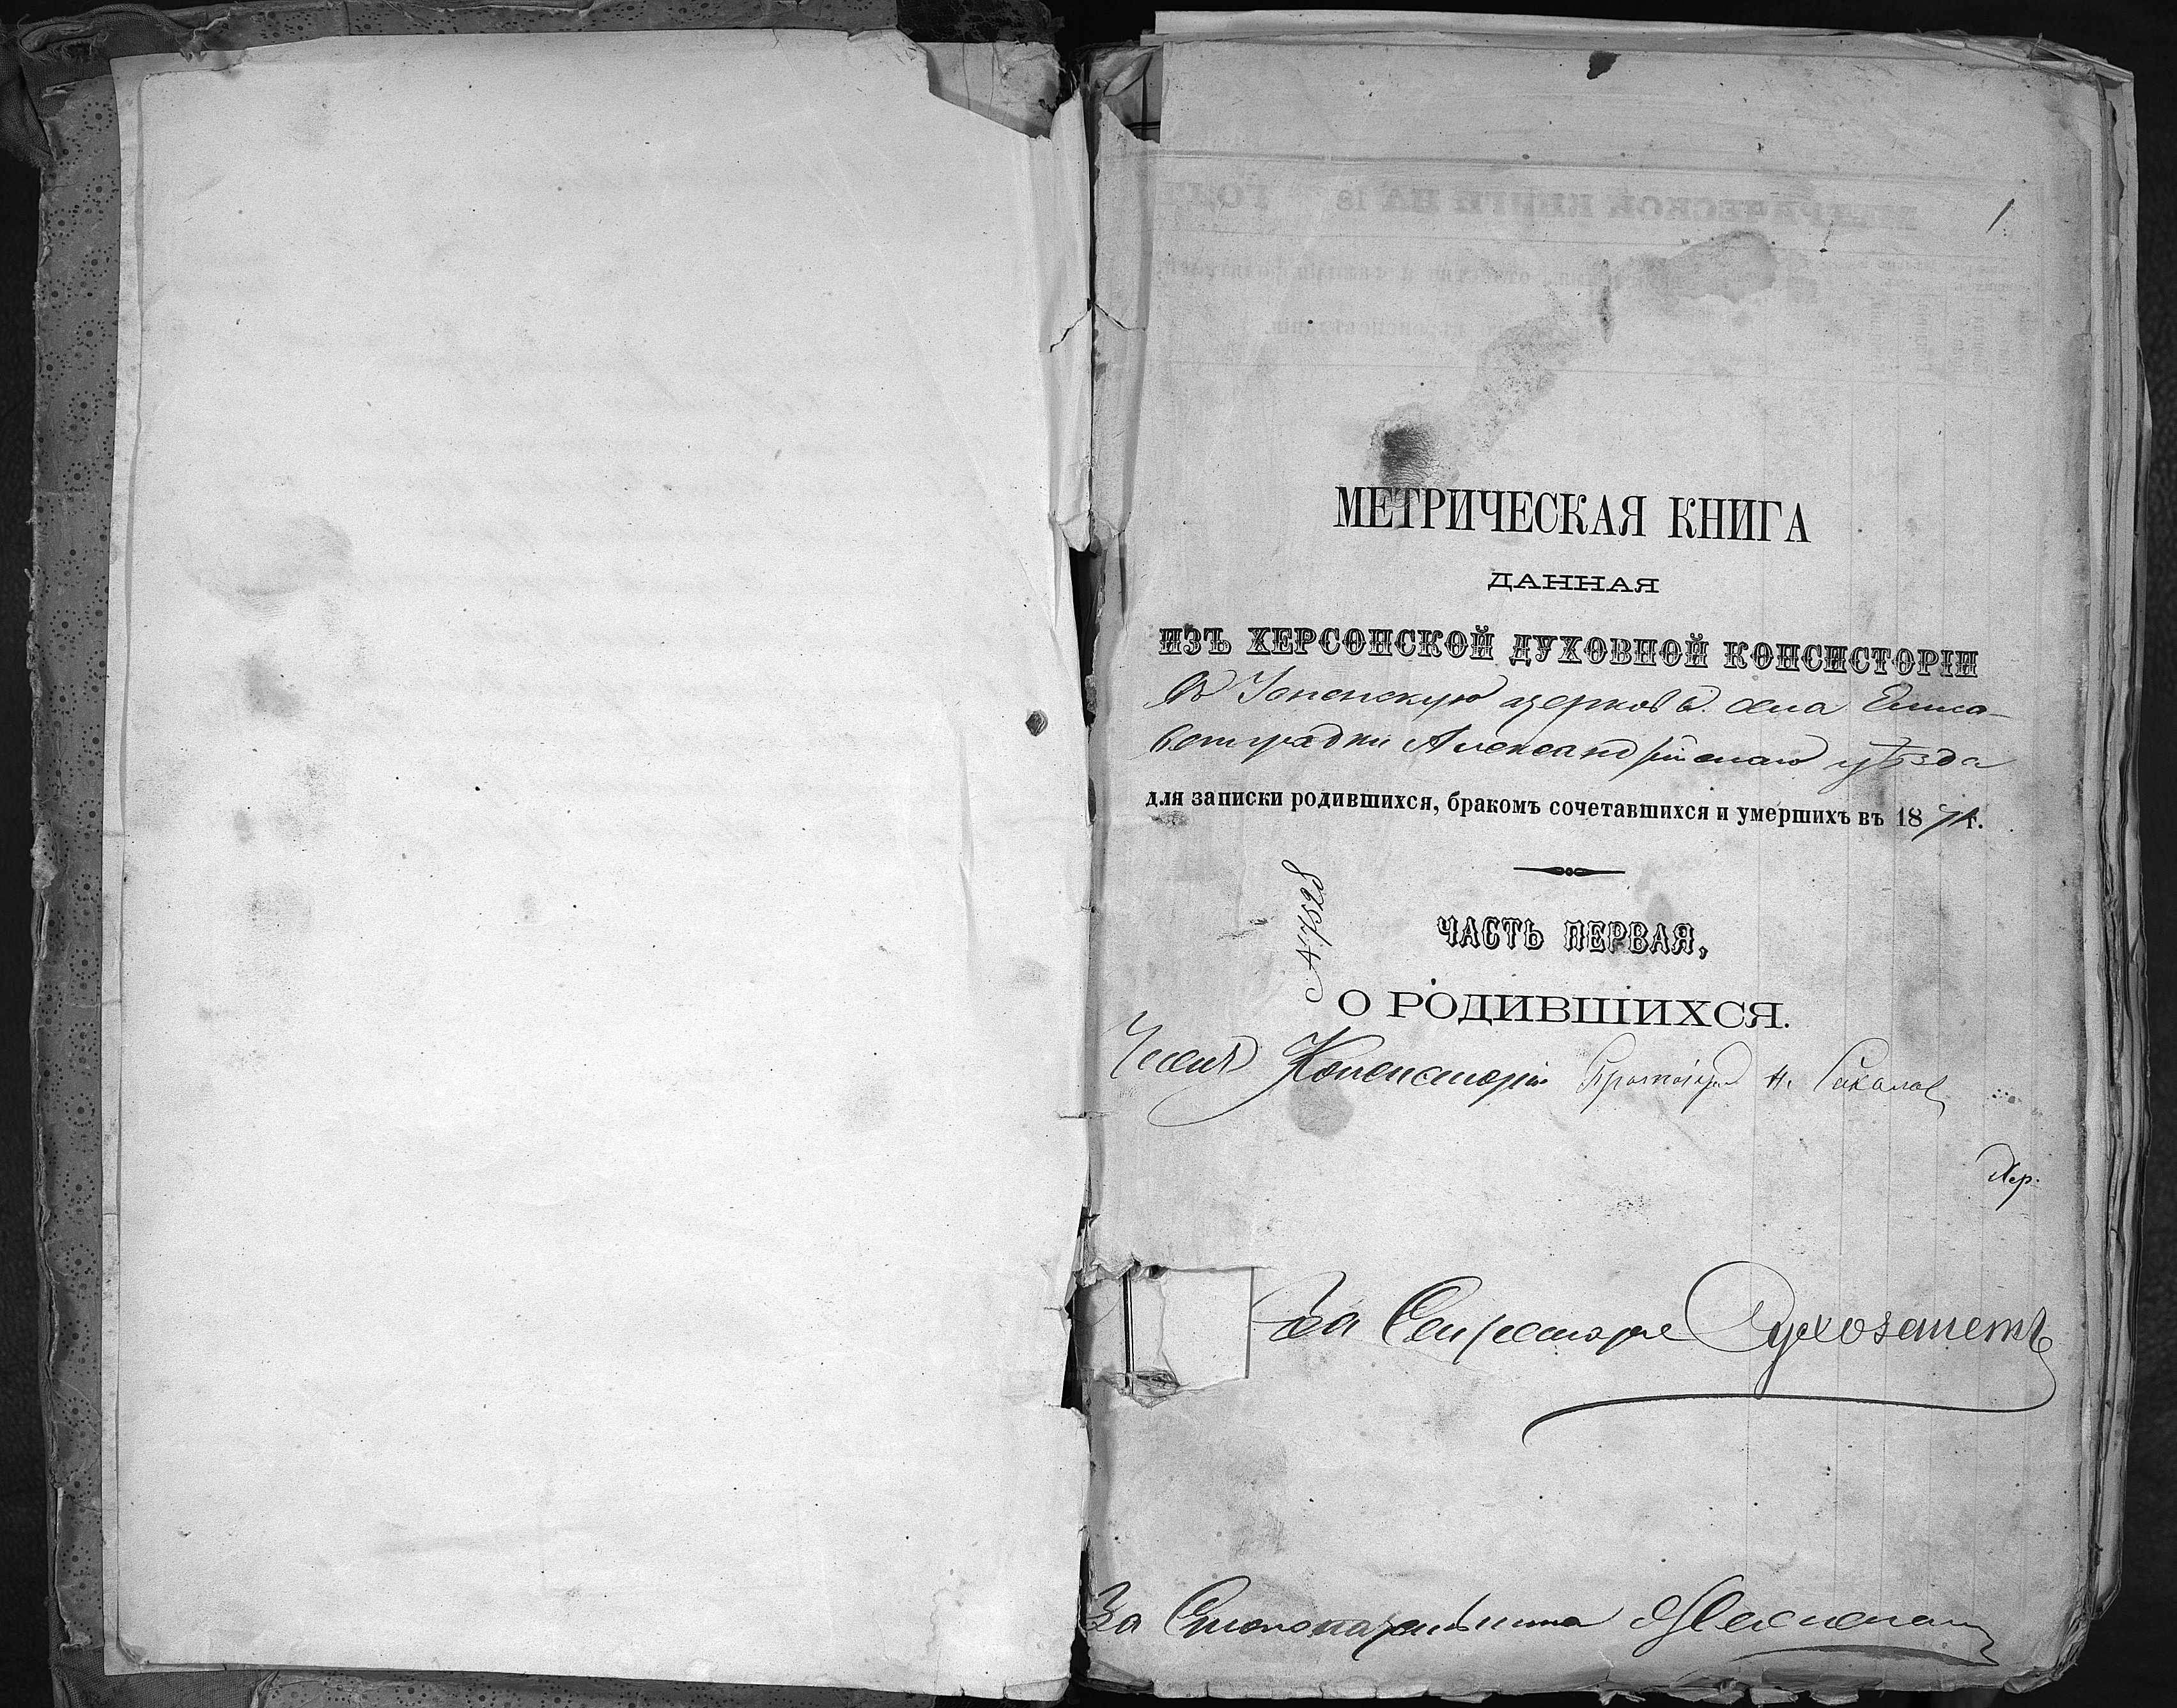 1.
МЕТРИЧЕСКАЯ КНИГА
ДАННАЯ
ИЗЪ ХЕРСОНСКОЙ ДУХОВНОЙ КОНСИСТОРІИ
въ Успенскую церковь села Елиса-
ветградки Александрійскаго уѣзда
для записки родившихся, бракомъ сочетавшихся и умершихъ въ 1871 г.
№ 7528
ЧАСТЬ ПЕРВАЯ,
О РОДИВШИХСЯ.
Членъ Консисторіи Протоіерей
Хер.
За Секретаря Сухозанетъ
За Столоначальника